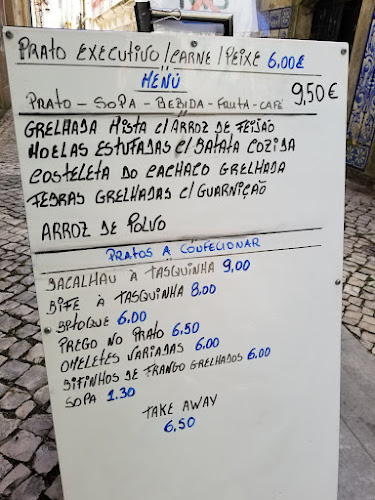 PRATO EXECUTIVO / CARNE / PEIXE 6,00€
MENÚ
PRATO - SOPA - BEBIDA - FRUTA - CAFÉ 9,50€
GRELHADA MISTA C/ ARROZ DE FEIJÃO
MOELAS ESTUFADAS C/ BATATA COZIDA
COSTELETA DO CACHAÇO GRELHADA
FEBRAS GRELHADAS C/ GUARNIÇÃO
ARROZ DE POLVO
PRATOS A CONFECIONAR
BACALHAU À TASQUINHA 9,00
BIFE À TASQUINHA 8,00
BITOQUE 6,00
PREGO NO PRATO 6,50
OMELETES VARIADAS 6,00
BIFINHOS DE FRANGO GRELHADOS 6,00
SOPA 1.30
TAKE AWAY
6,50